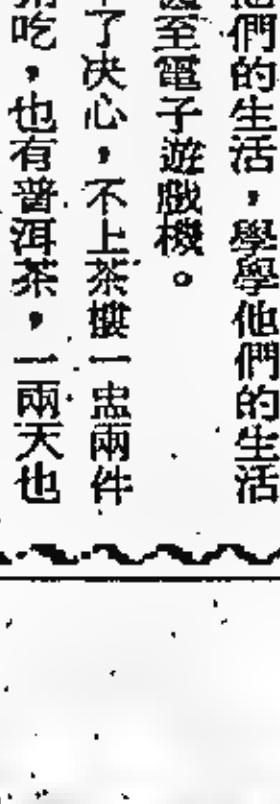 們的生活，學學他們的生活
至電子遊戲機。
了決心，不上茶樓一盅兩件
吃，也有普洱茶，一兩天也